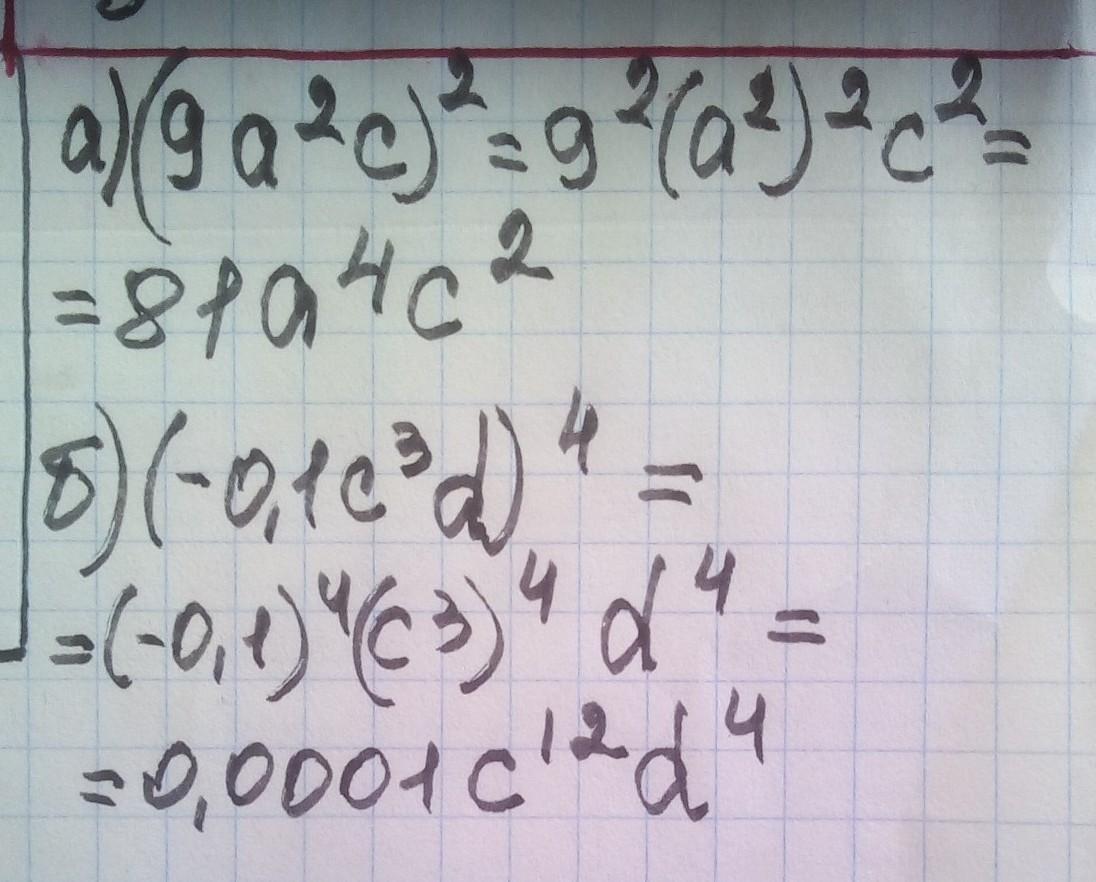 а) (9a²c)² = 9²(a²)²c² =
= 81a⁴c²
б) (-0,1c³d)⁴ =
= (-0,1)⁴(c³)⁴ d⁴ =
= 0,0001c¹²d⁴